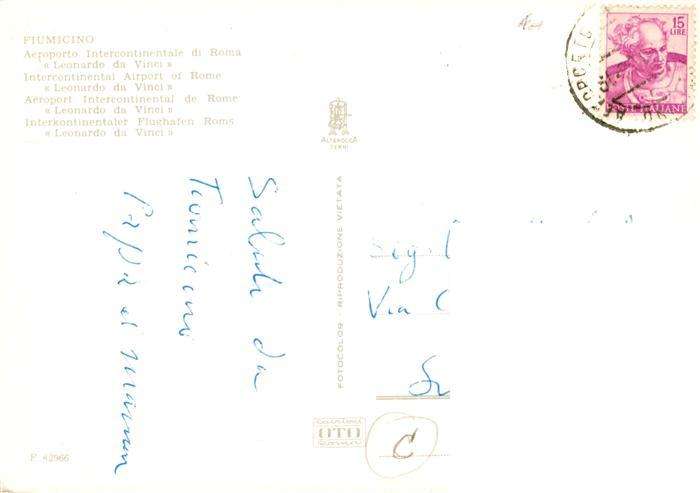 FIUMICINO
Aeroporto Intercontinentale di Roma
« Leonardo da Vinci »
Intercontinental Airport of Rome
« Leonardo da Vinci »
Aeroport Intercontinental de Rome
« Leonardo da Vinci »
Interkontinentaler Flughafen Roms
« Leonardo da Vinci »
ALTEROCCA
TERNI
15
LIRE
POSTE ITALIANE
FOTOCOLOR - RIPRODUZIONE VIETATA
Saluti da
Papà
Via
OTO
C
F 42966